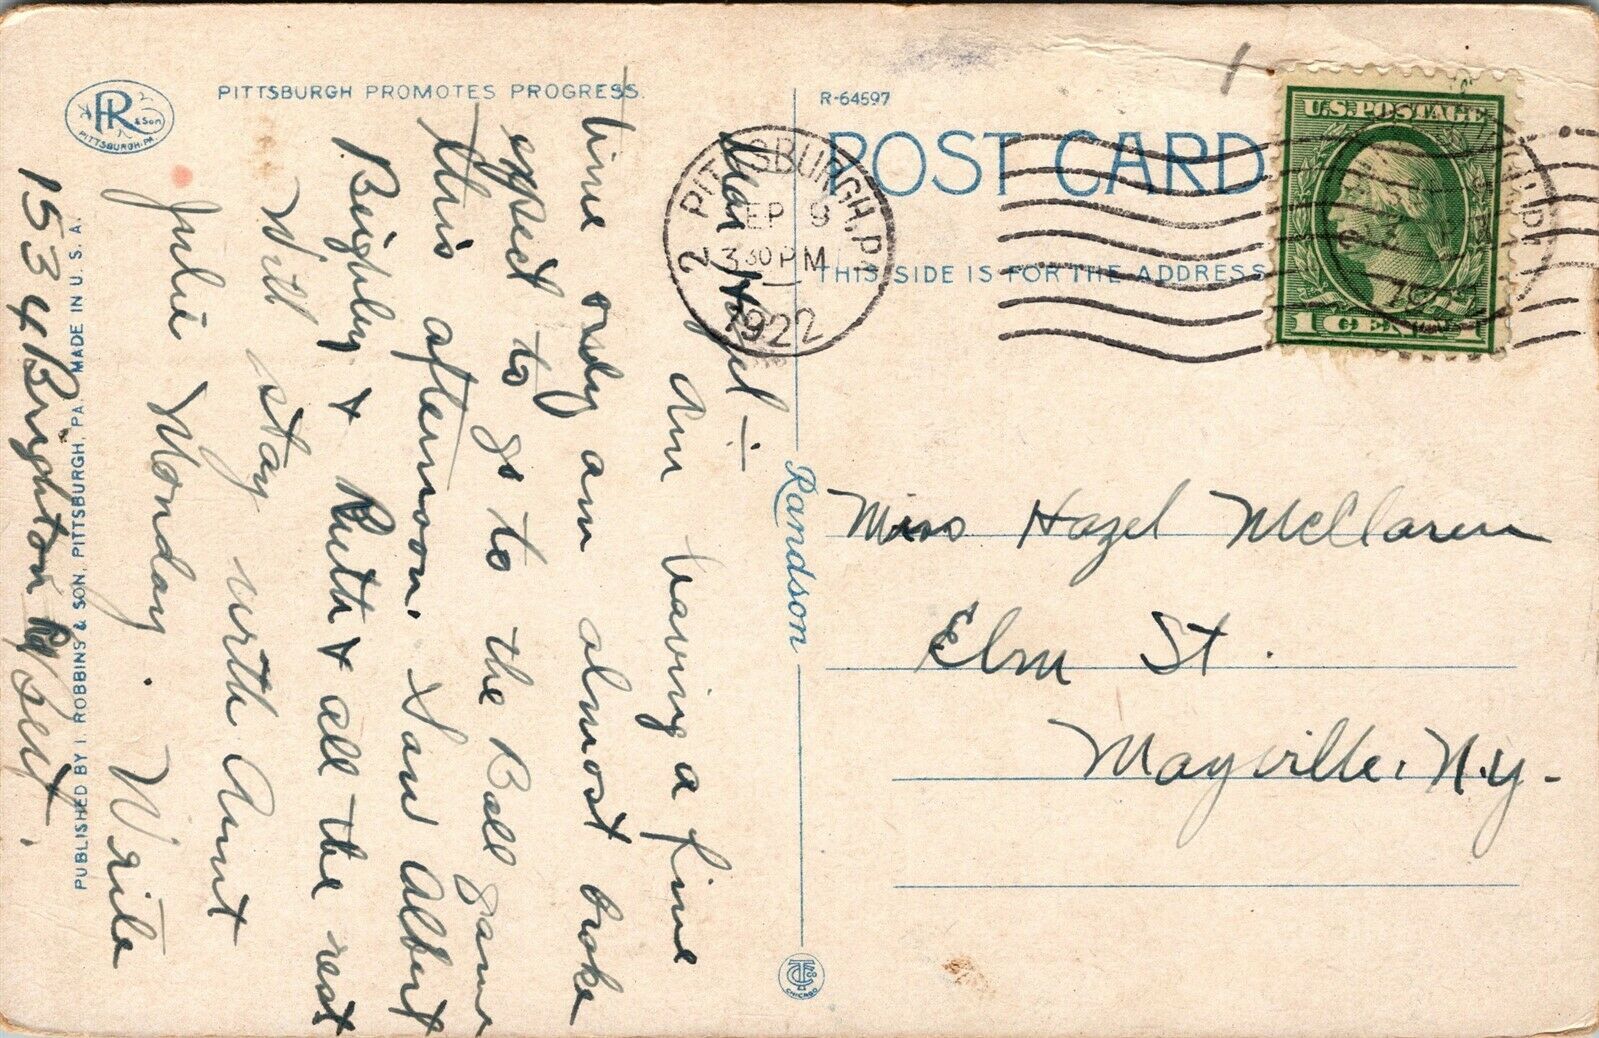 PITTSBURGH PROMOTES PROGRESS.
PR & Son
PITTSBURGH, PA.
R-64597
POST CARD
THIS SIDE IS FOR THE ADDRESS
U.S. POSTAGE
1 CENT 1
PITTSBURGH, PA.
SEP 9
3 30 PM
1922
2
Dear Hazel –
Am having a fine
time only am almost broke
expect to go to the Ball game
this afternoon. Saw Albert
Beighley & Ruth & all the rest
Will stay with Aunt
Julie Monday. Write
1534 Brighton Bert.
Miss Hazel McClaren
Elm St.
Mayville, N.Y-
Randson
PUBLISHED BY I. ROBBINS & SON, PITTSBURGH, PA. MADE IN U.S.A.
CHICAGO